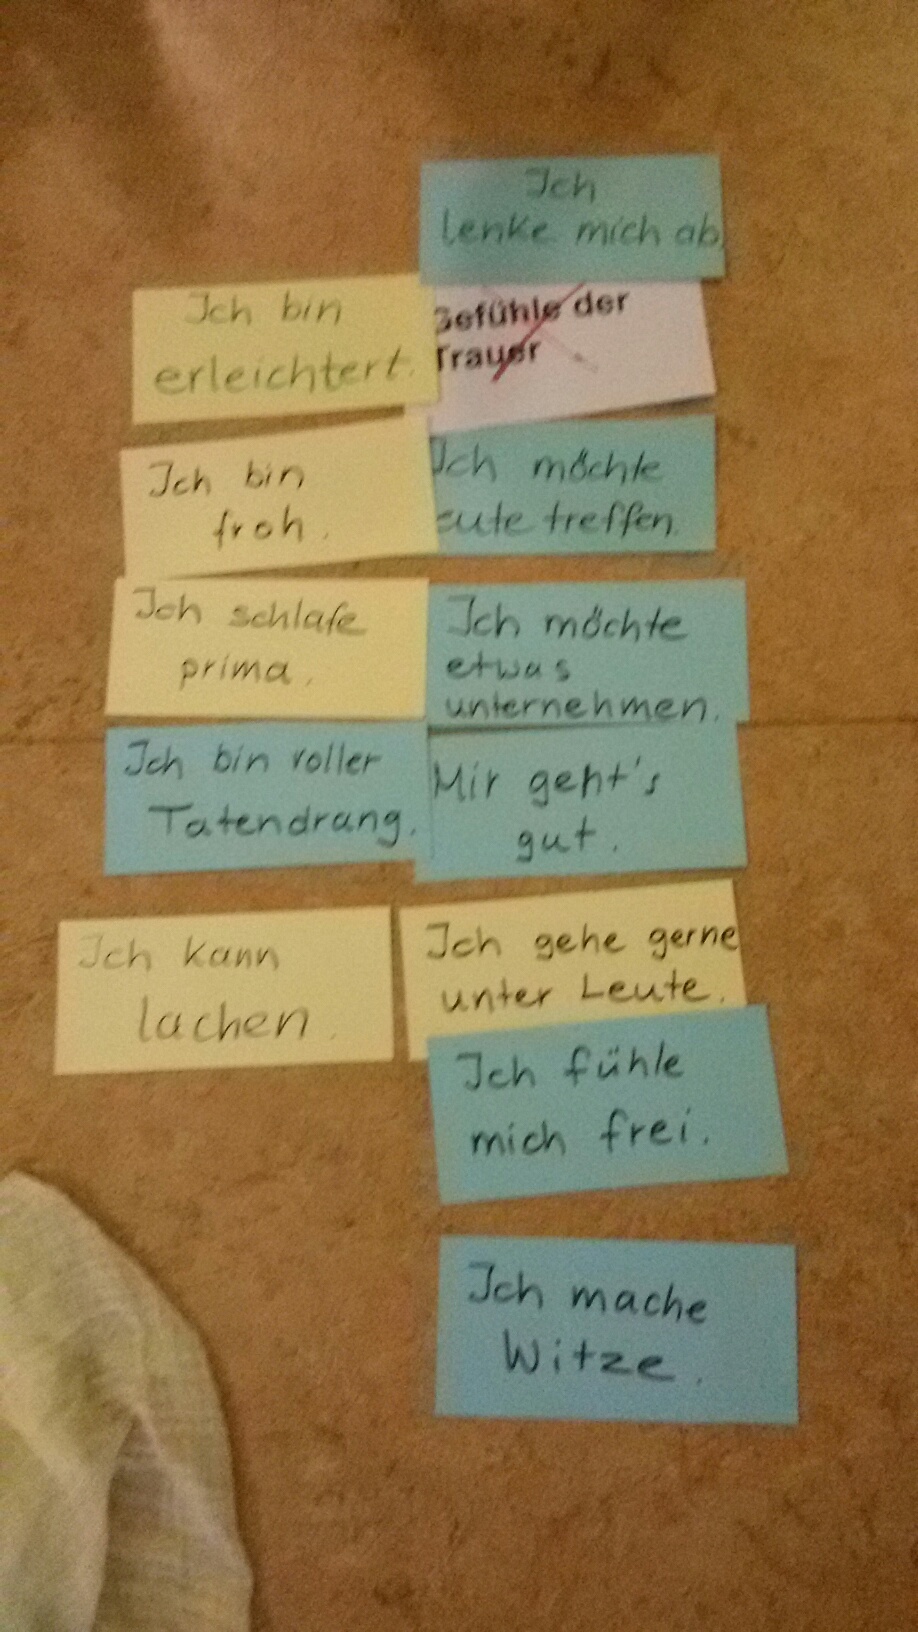 Ich
lenke mich ab
Ich bin
erleichtert.
Gefühle der
Trauer
Ich bin
froh.
Ich möchte
eute treffen.
Ich schlafe
prima.
Ich möchte
etwas
unternehmen.
Ich bin voller
Tatendrang.
Mir geht's
gut.
Ich kann
lachen.
Ich gehe gerne
unter Leute.
Ich fühle
mich frei.
Ich mache
Witze.